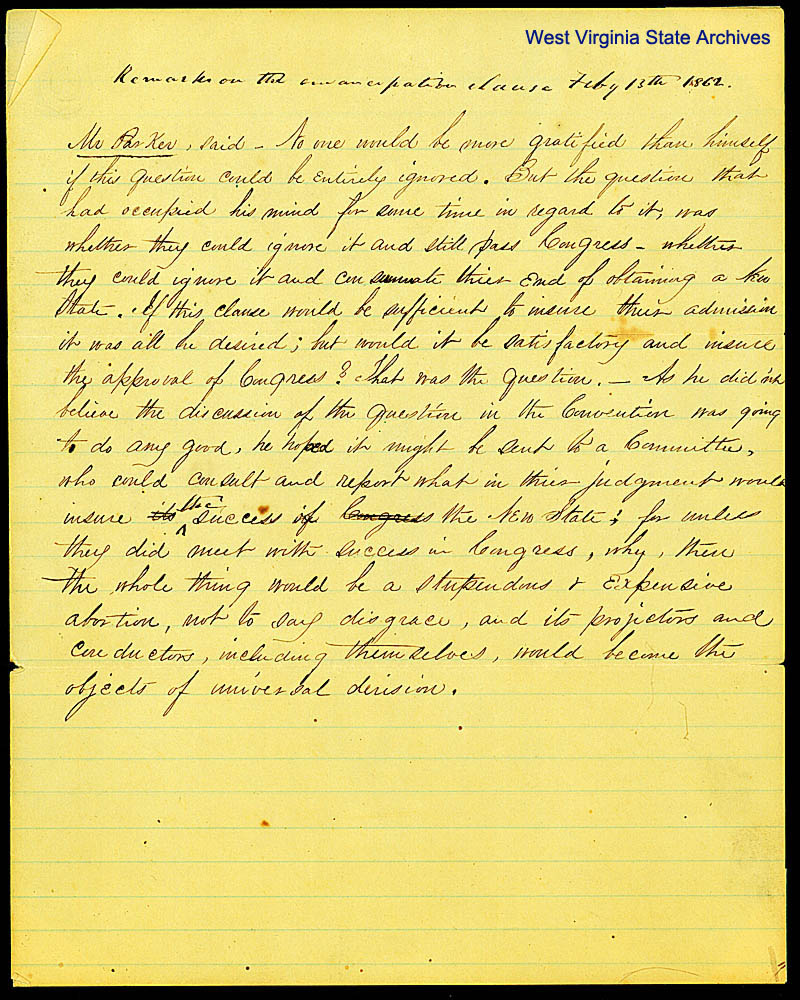 West Virginia State Archives
Remarks on the emancipation clause Feby 13th 1862.
Mr Parker, said - No one would be more gratified than himself
if this question could be entirely ignored. But the question that
had occupied his mind for some time in regard to it, was
whether they could ignore it and still pass Congress - whether
they could ignore it and consumate thier end of obtaining a New
State. If this clause would be sufficient to insure thier admission
it was all he desired; but would it be satisfactory and insure
the approval of Congress? That was the question. - As he did'nt
believe the discussion of the question in the Convention was going
to do any good, he hoped it might be sent to a Committee,
who could consult and report what in thier judgment would
insure its the success of Congress the New State; for unless
they did meet with success in Congress, why, then
the whole thing would be a stupendous & expensive
abortion, not to say disgrace, and its projectors and
conductors, including themselves, would become the
objects of universal derision.